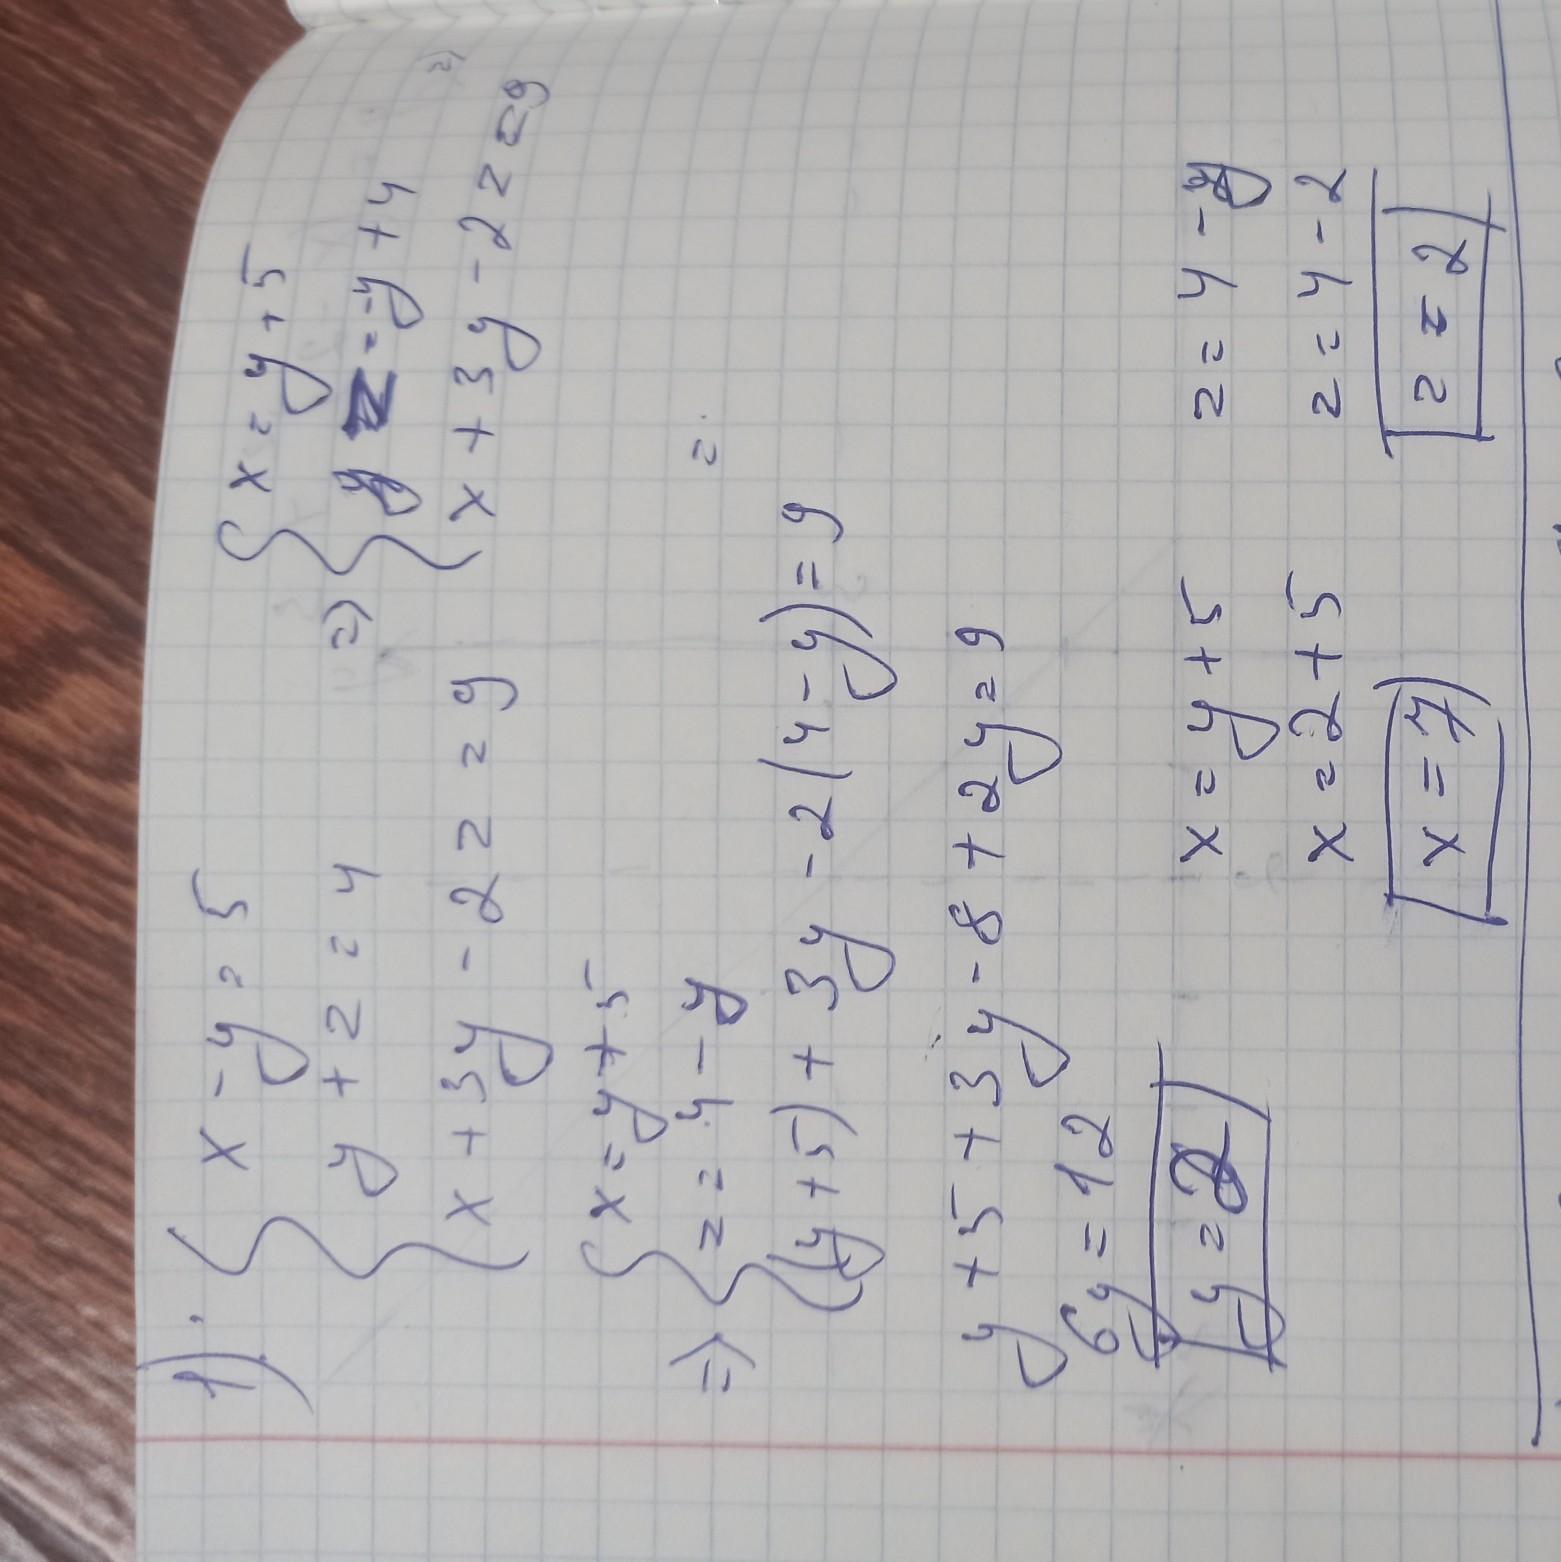 1). { x - y = 5
y + z = 4
x + 3y - 2z = 9
=> { x = y + 5
z = -y + 4
x + 3y - 2z = 9
=>
=> { x = y + 5
z = 4 - y
(y + 5) + 3y - 2(4 - y) = 9
=
y + 5 + 3y - 8 + 2y = 9
6y = 12
y = 2
x = y + 5
x = 2 + 5
x = 7
z = 4 - y
z = 4 - 2
z = 2